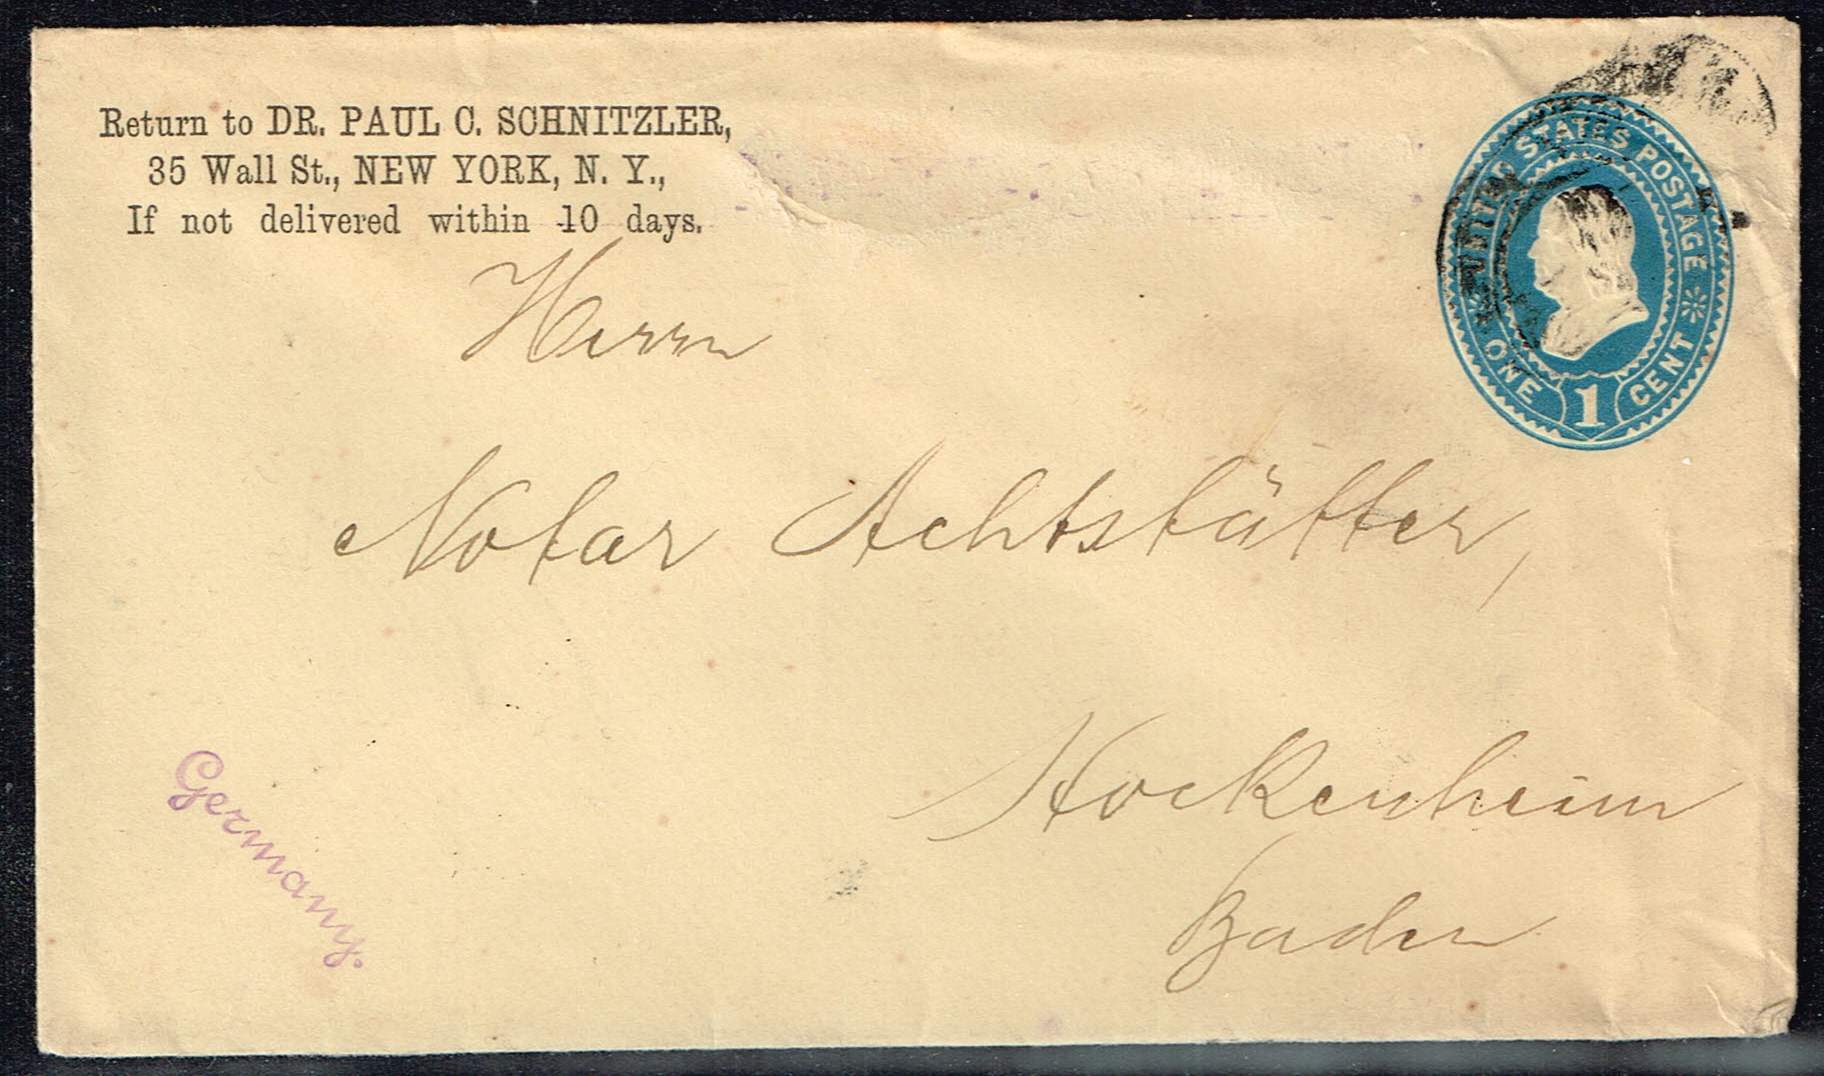 Return to DR. PAUL C. SCHNITZLER,
35 Wall St., NEW YORK, N. Y.,
If not delivered within 10 days.
UNITED STATES POSTAGE
ONE 1 CENT
Herrn
Notar Achtstätter,
Hockenheim
Baden
Germany.